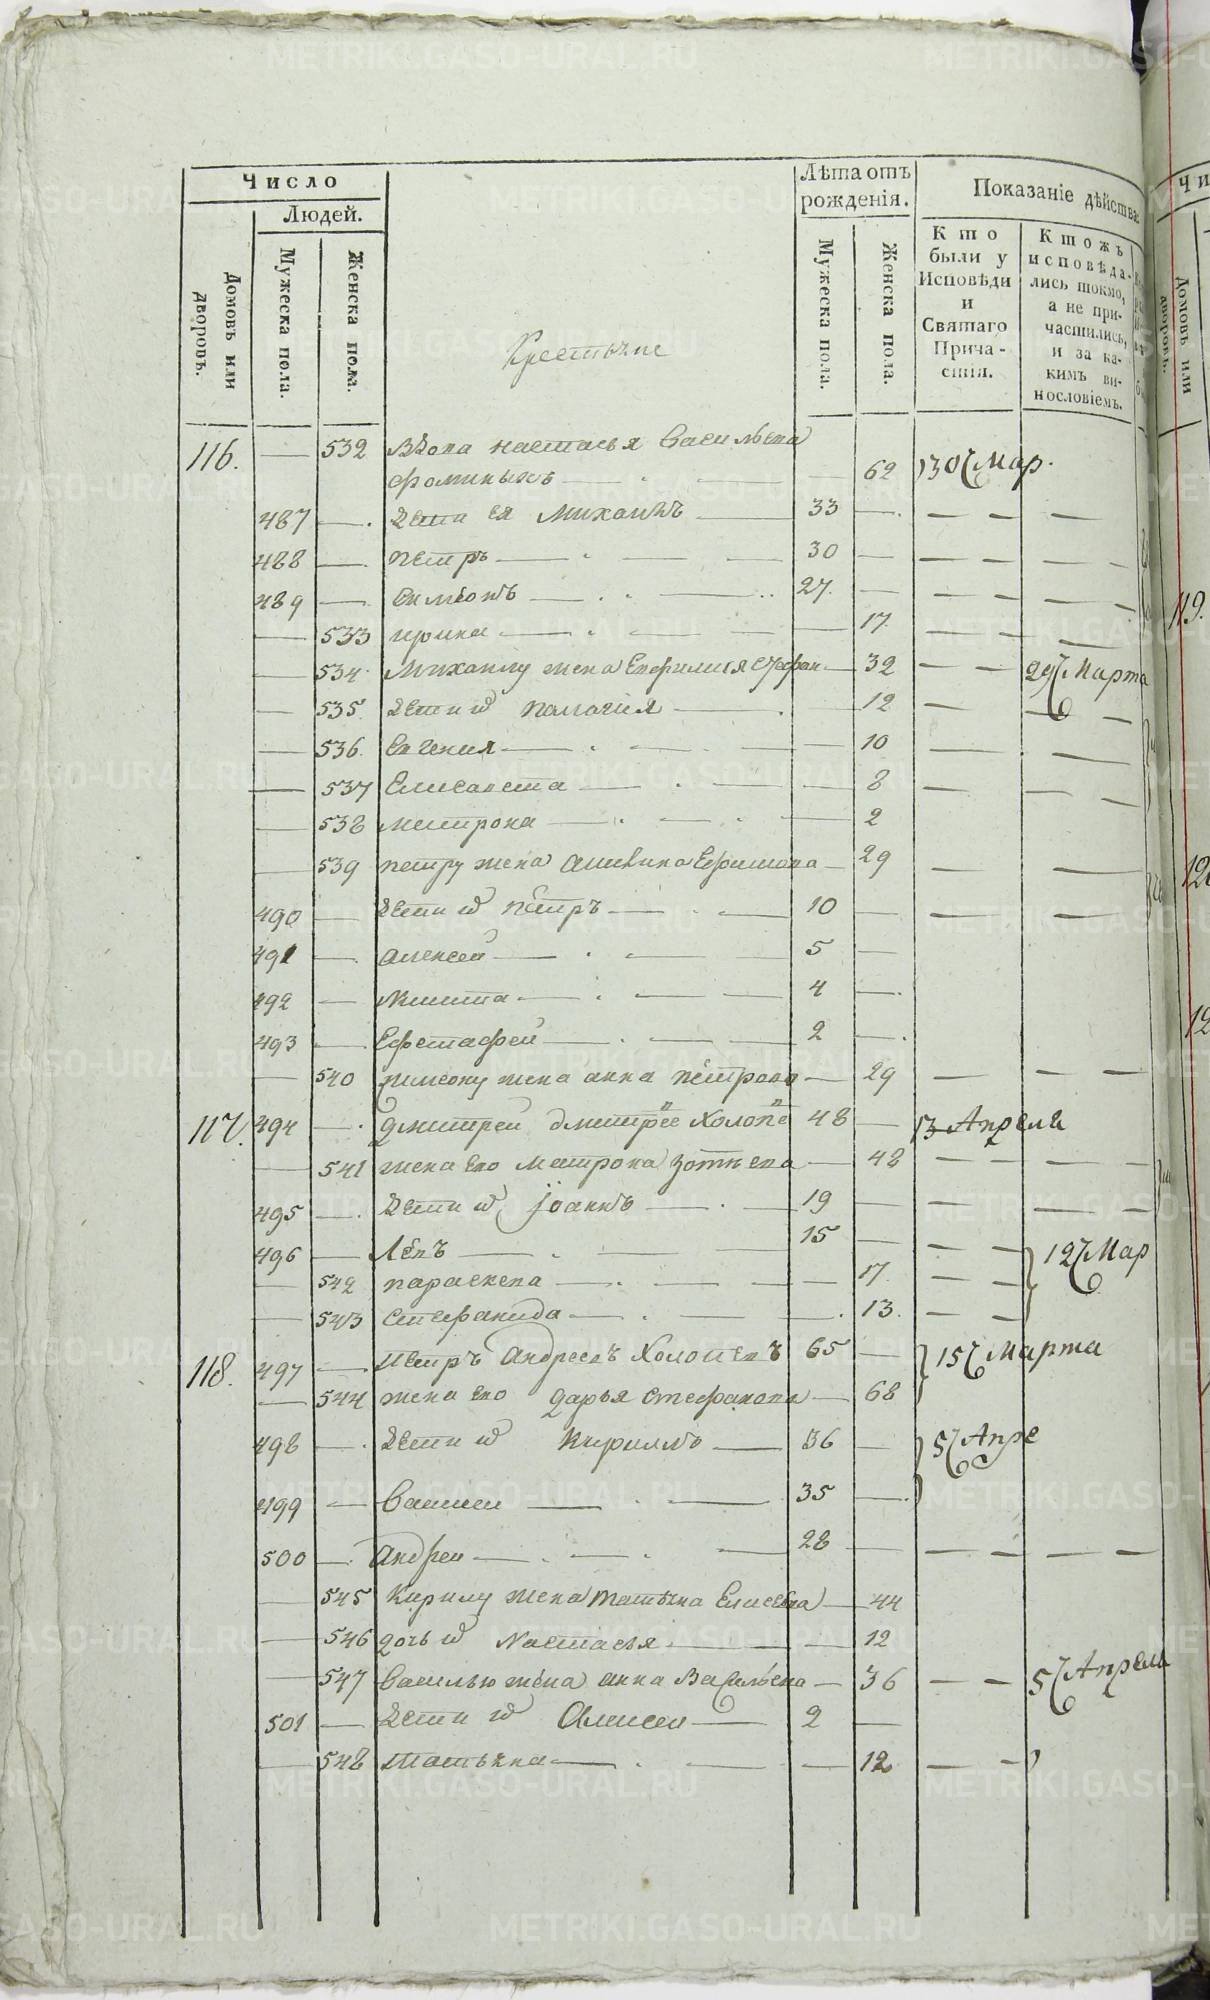 Число
Людей.
Домовъ или дворовъ.
Мужеска пола.
Женска пола.
Крестьяне
Лѣта отъ рожденія.
Мужеска пола.
Женска пола.
Показаніе дѣйства:
Кто были у Исповѣди и Святаго Причастія.
Ктожъ исповѣдались токмо, а не причастились, и за какимъ винословіемъ.
116. — 532 Вдова настасья Васильева
фоминыхъ — 62 30 Мар.
487 — Дети ея Михаилъ 33 —
488 — петръ — 30 —
489 — Симеонъ — 27. —
— 533 ирина — 17.
— 534 Михаилу жена Евфимия Стефан — 32 29 Марта
— 535 Дети и͠ пелагия — 12
— 536. Евгения — 10
— 537 Елисавета — 8
— 538 матрона — 2
— 539 петру жена Ефимова — 29
490 — Дети и͠ петръ — 10 —
491 — алексей — 5 —
492 — Никита — 4 —
493 — Ефстафей — 2 —
— 540 симеону жена анна петрова — 29
117. 494 — Дмитрей Дмитрее Холопо 48 — 13 Апреля
— 541 жена ево матрона зотеева — 48
495 — Дети и͠ Іоаннъ — 19 —
496 — Левъ — 15 — 12 Мар
— 542 параскева — 17.
— 543 стефанида — 13.
118. 497 — петръ Андреевъ Холоповъ 65 — 15 Марта
— 544 жена ево дарья стефанова — 68
498 — Дети и͠ Кириллъ — 36 — 5 Апре
499 — Василеи — 35 —
500 — Андреи — 28 —
— 545 Кирилу жена татьяна Елисеева — 44
— 546 дочь и͠ Настасья — 12
— 547 Василью жена анна Васильева — 36 5 Апреля
501 — Дети и͠ Алексеи — 2 —
— 548 татьяна — 12
Чи
Домовъ или дворовъ.
119.
METRIKI.GASO-URAL.RU